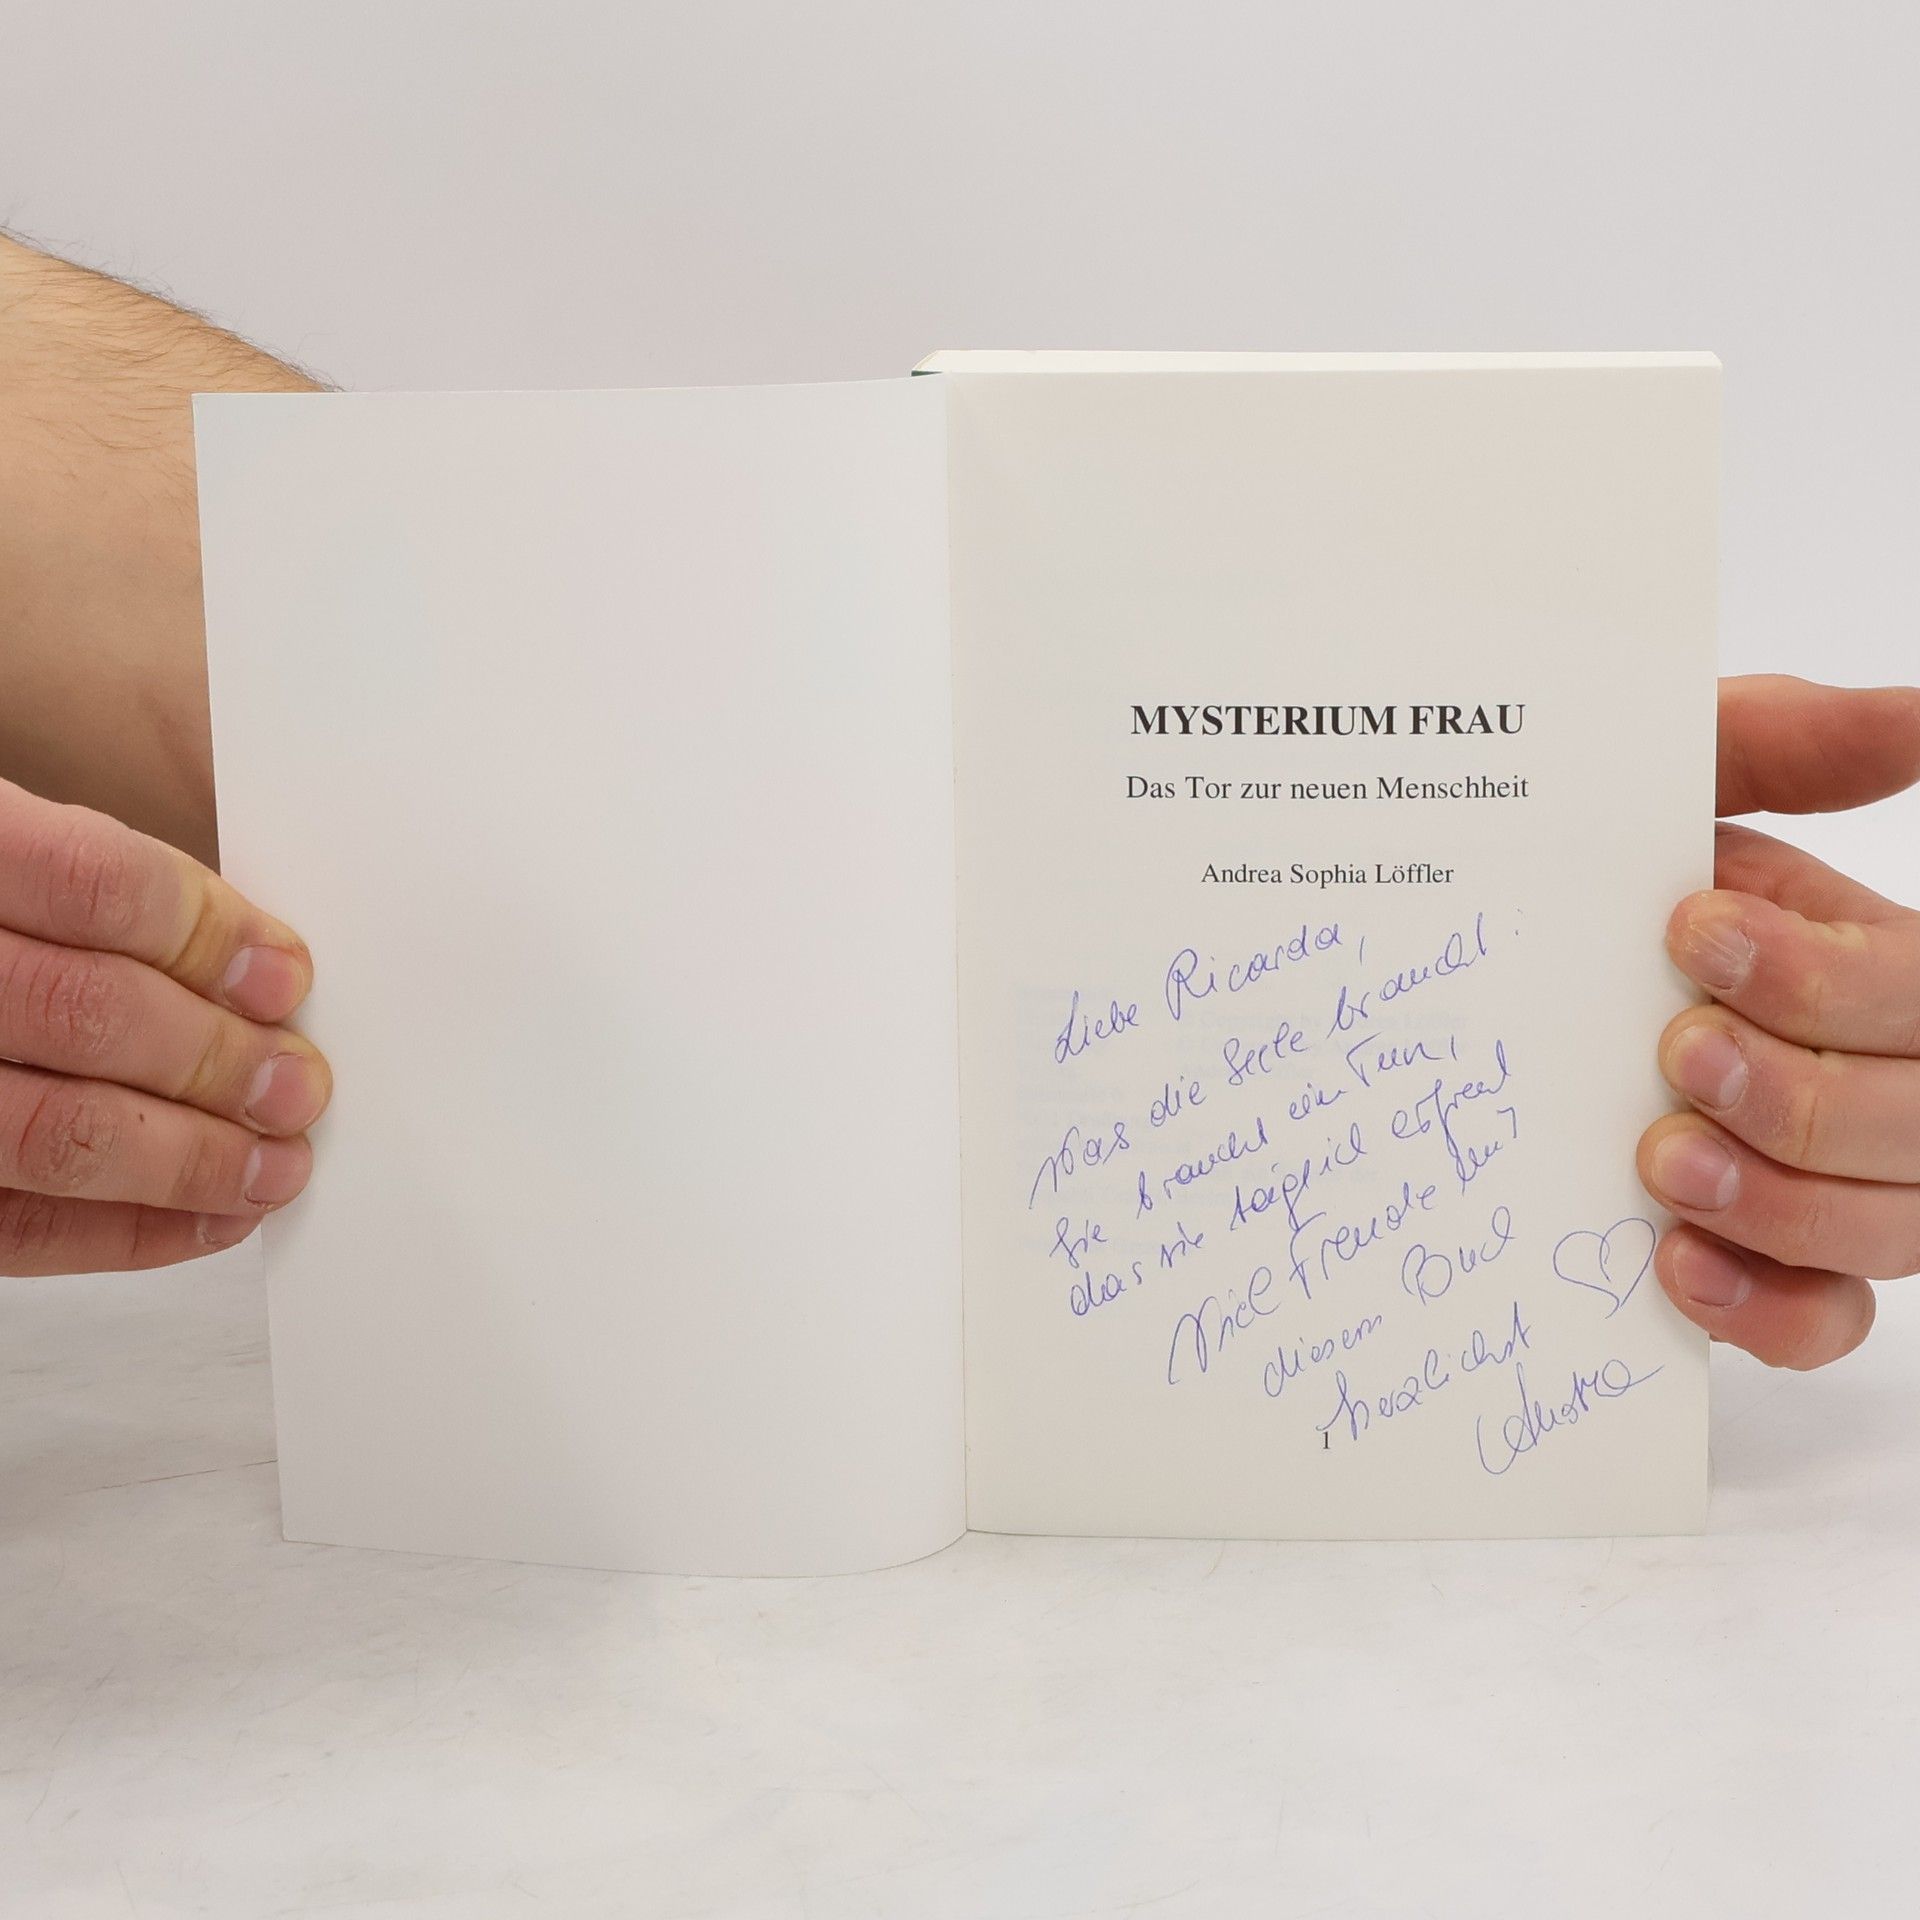 MYSTERIUM FRAU
Das Tor zur neuen Menschheit
Andrea Sophia Löffler
Liebe Ricarda,
Was die Seele braucht:
Sie braucht ein Tun,
das sie täglich erfreut
Viel Freude mit
diesem Buch
herzlichst
Andrea
1